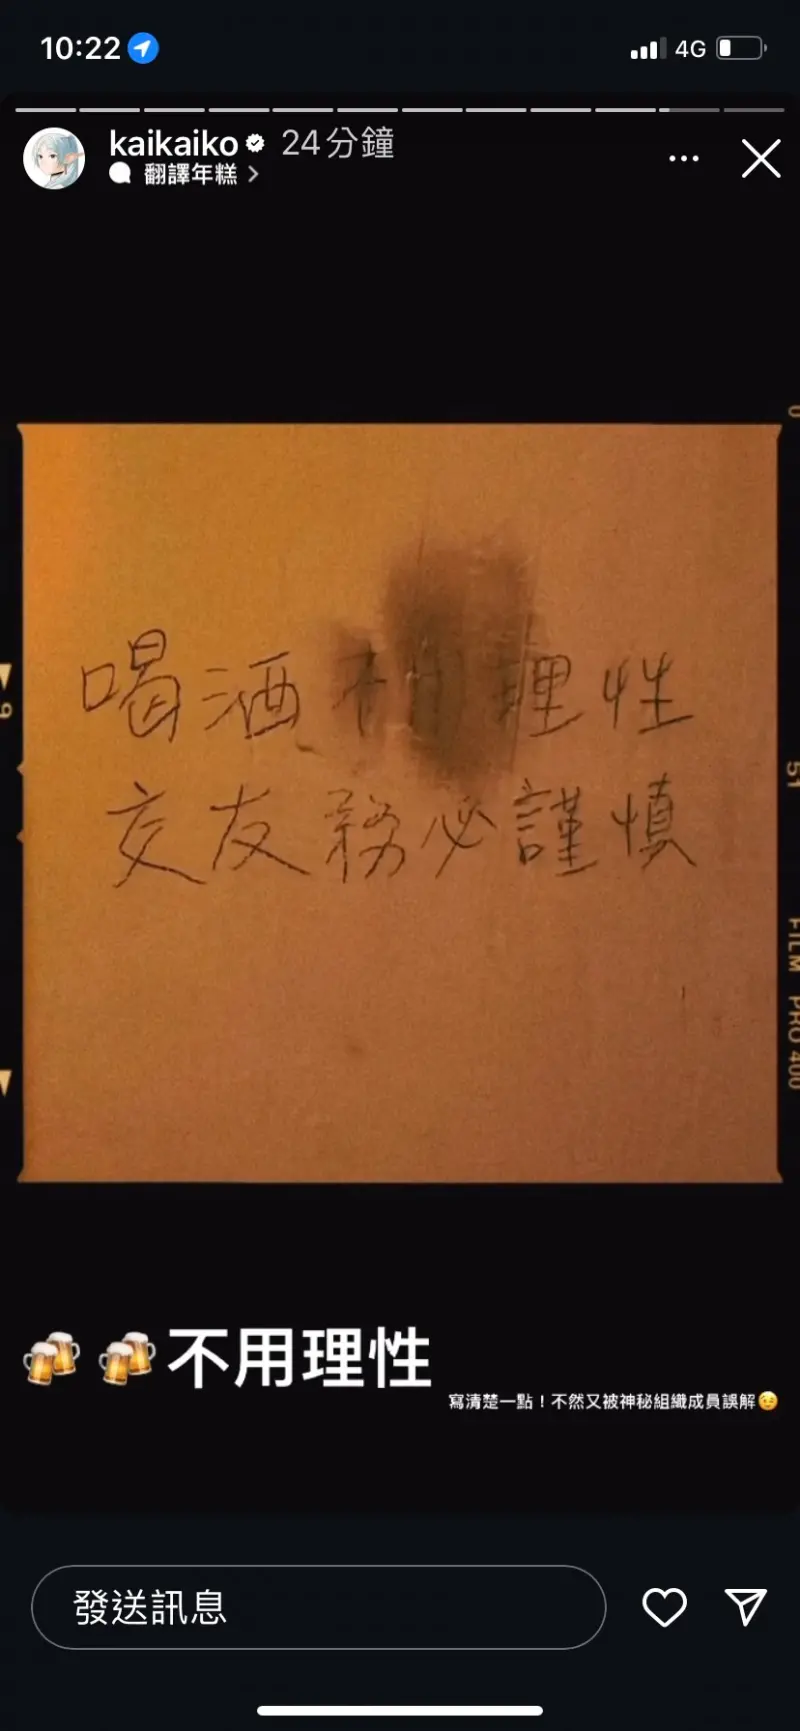 10:22
4G
kaikaiko 24分鐘
翻譯年糕
喝酒 理性
交友務必謹慎
0
9
51
FILM PRO 400
🍻 🍻不用理性
寫清楚一點！不然又被神秘組織成員誤解😉
發送訊息